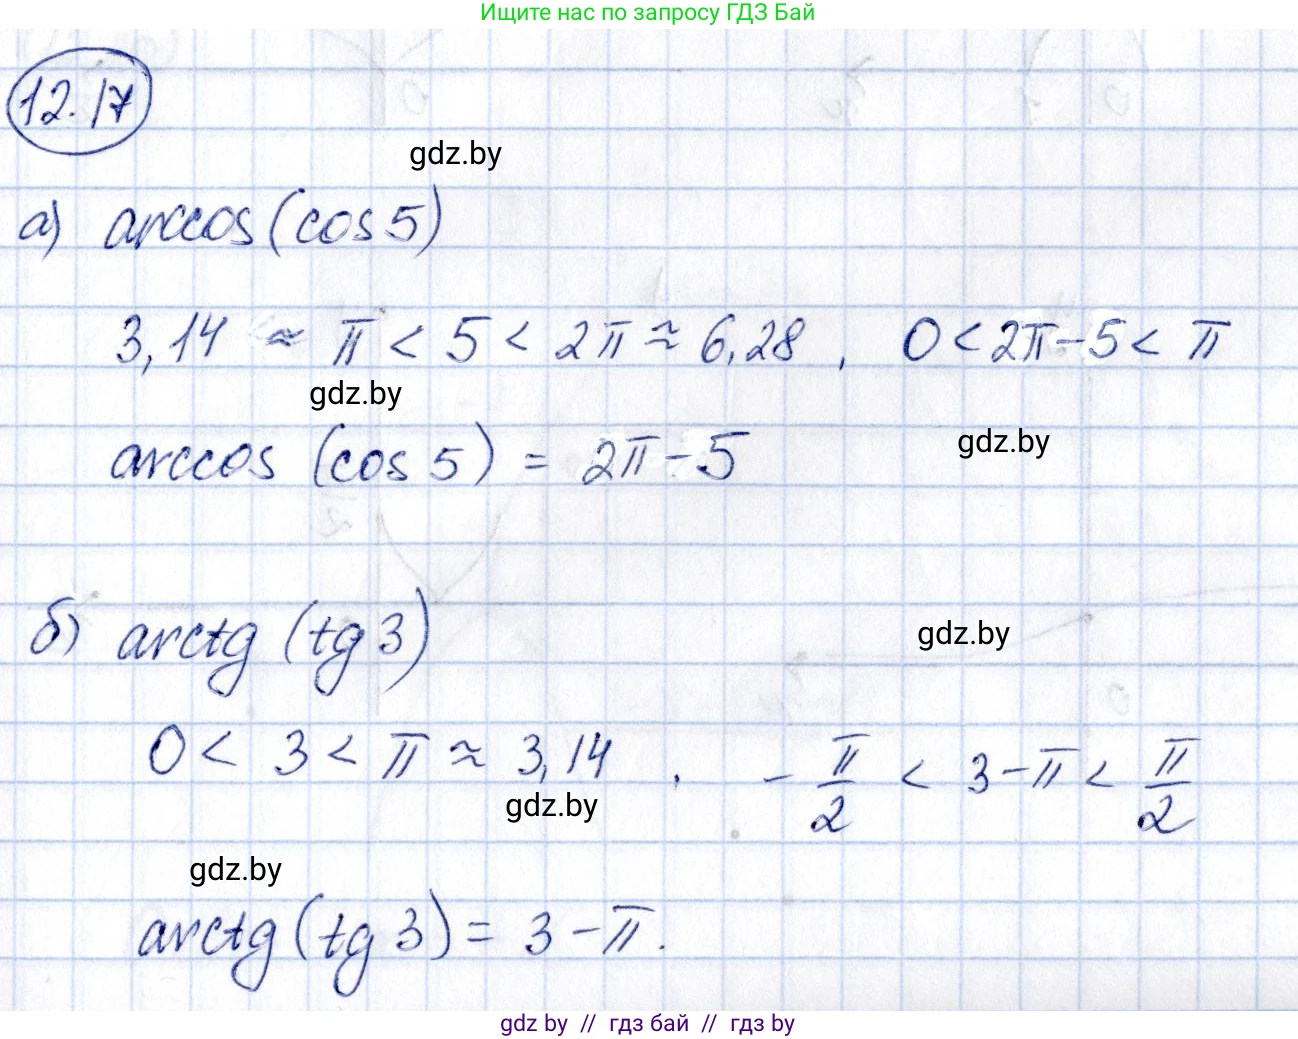 Ищите нас по запросу ГДЗ Бай
12.17
gdz.by
а) arccos(cos 5)
3,14 ≈ π < 5 < 2π ≈ 6,28 , 0 < 2π - 5 < π
gdz.by
gdz.by
arccos (cos 5) = 2π - 5
б) arctg (tg 3)
gdz.by
0 < 3 < π ≈ 3,14 , -π/2 < 3 - π < π/2
gdz.by
gdz.by
arctg (tg 3) = 3 - π.
gdz by // гдз бай // гдз by